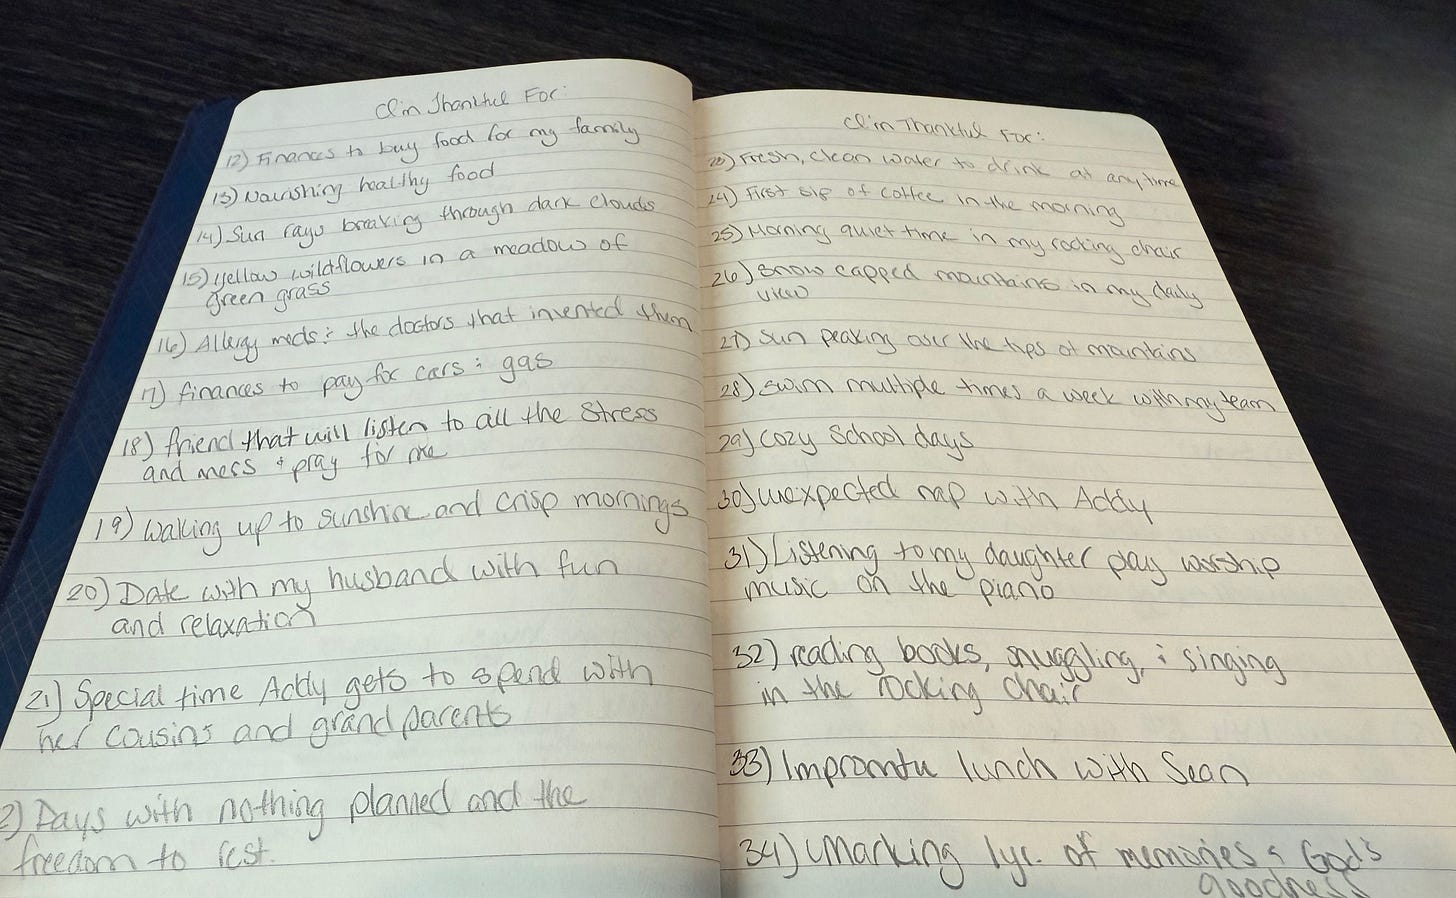 I'm Thankful For:
12) Finances to buy food for my family
13) Nourishing healthy food
14) Sun rays breaking through dark clouds
15) yellow wildflowers in a meadow of
green grass
16) Allergy meds & the doctors that invented them
17) finances to pay for cars & gas
18) friend that will listen to all the stress
and mess & pray for me
19) Waking up to sunshine and crisp mornings
20) Date with my husband with fun
and relaxation
21) Special time Addy gets to spend with
her cousins and grandparents
2) Days with nothing planned and the
freedom to rest.
I'm Thankful For:
23) Fresh, clean water to drink at any time
24) First sip of coffee in the morning
25) Morning quiet time in my rocking chair
26) Snow capped mountains in my daily
view
27) Sun peaking over the tips of mountains
28) Swim multiple times a week with my team
29) Cozy School days
30) Unexpected nap with Addy
31) Listening to my daughter play worship
music on the piano
32) reading books, snuggling, & singing
in the rocking chair
33) Impromtu lunch with Sean
34) Marking 1yr. of memories & God's
goodness